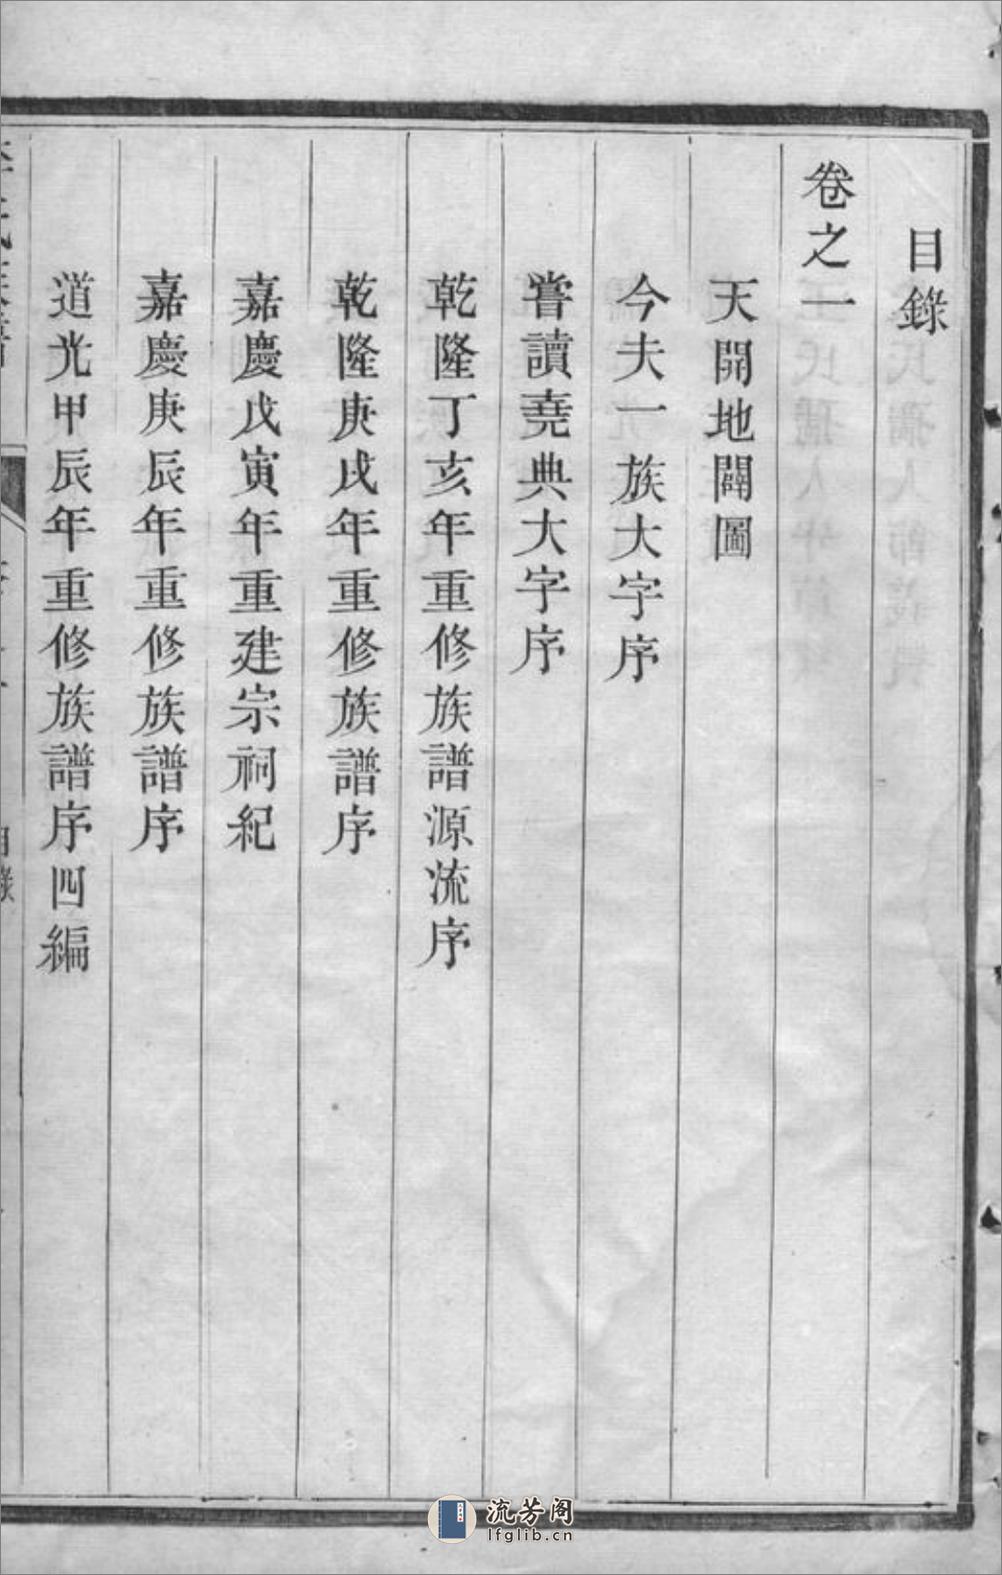 目錄
卷之一
天開地闢圖
今夫一族大字序
嘗讀堯典大字序
乾隆丁亥年重修族譜源流序
乾隆庚戌年重修族譜序
嘉慶戊寅年重建宗祠紀
嘉慶庚辰年重修族譜序
道光甲辰年重修族譜序四編
目錄
流芳阁
lfglib.cn